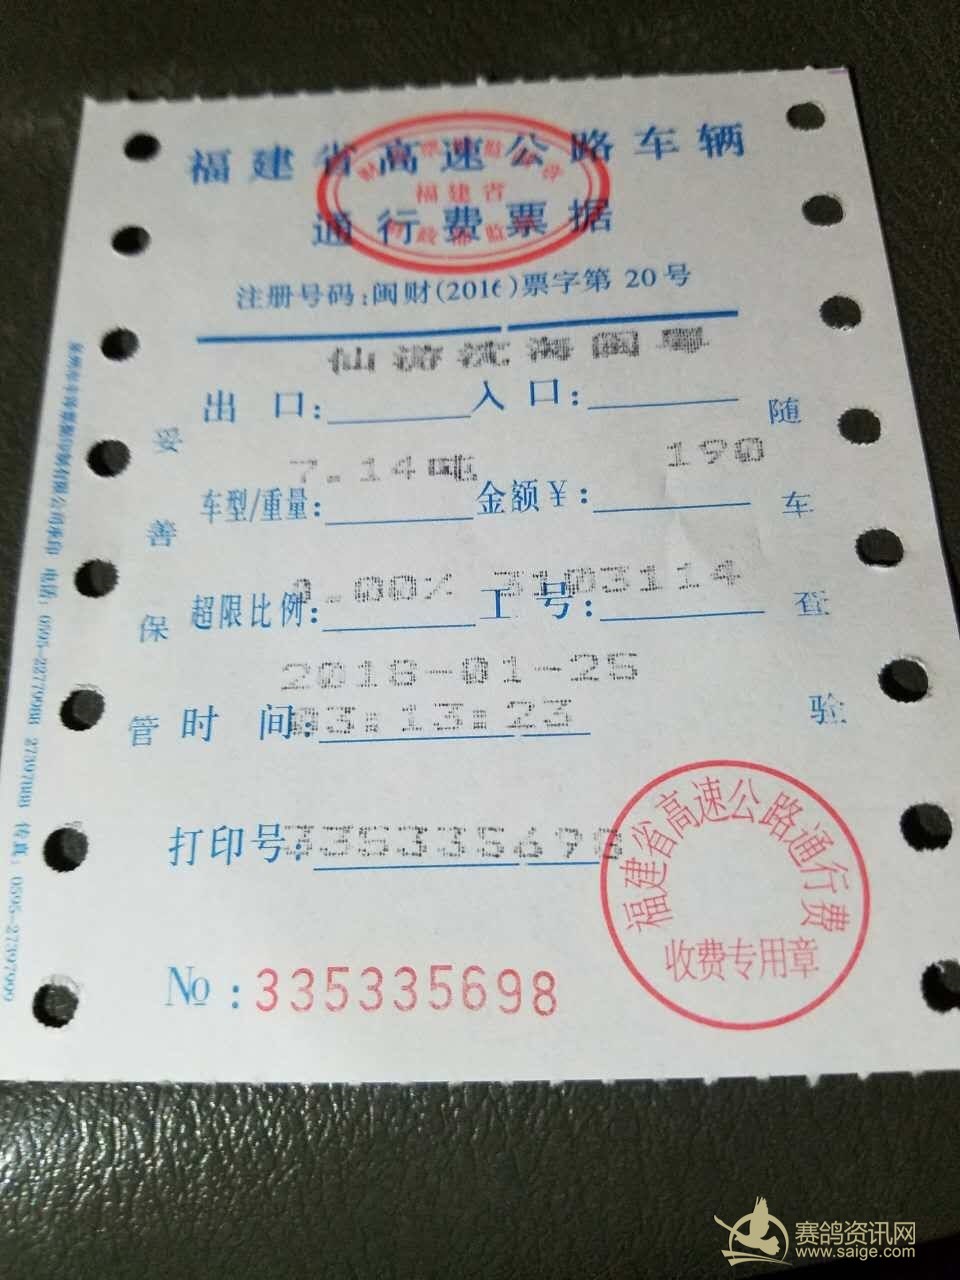 福建省高速公路车辆
通行费票据
福建省
注册号码:闽财(2016)票字第 20号
仙游沈海闽粤
出 口: 入 口:
7.14吨 190
车型/重量: 金额￥:
.00% 3103114
超限比例: 工 号:
2018-01-25
03:13:23
时 间:
打印号: 335335698
№:335335698
妥善保管
随车查验
福建省高速公路通行费
收费专用章
电话:0595-22779088 27397088 传真:0595-27397999
赛鸽资讯网
www.saige.com